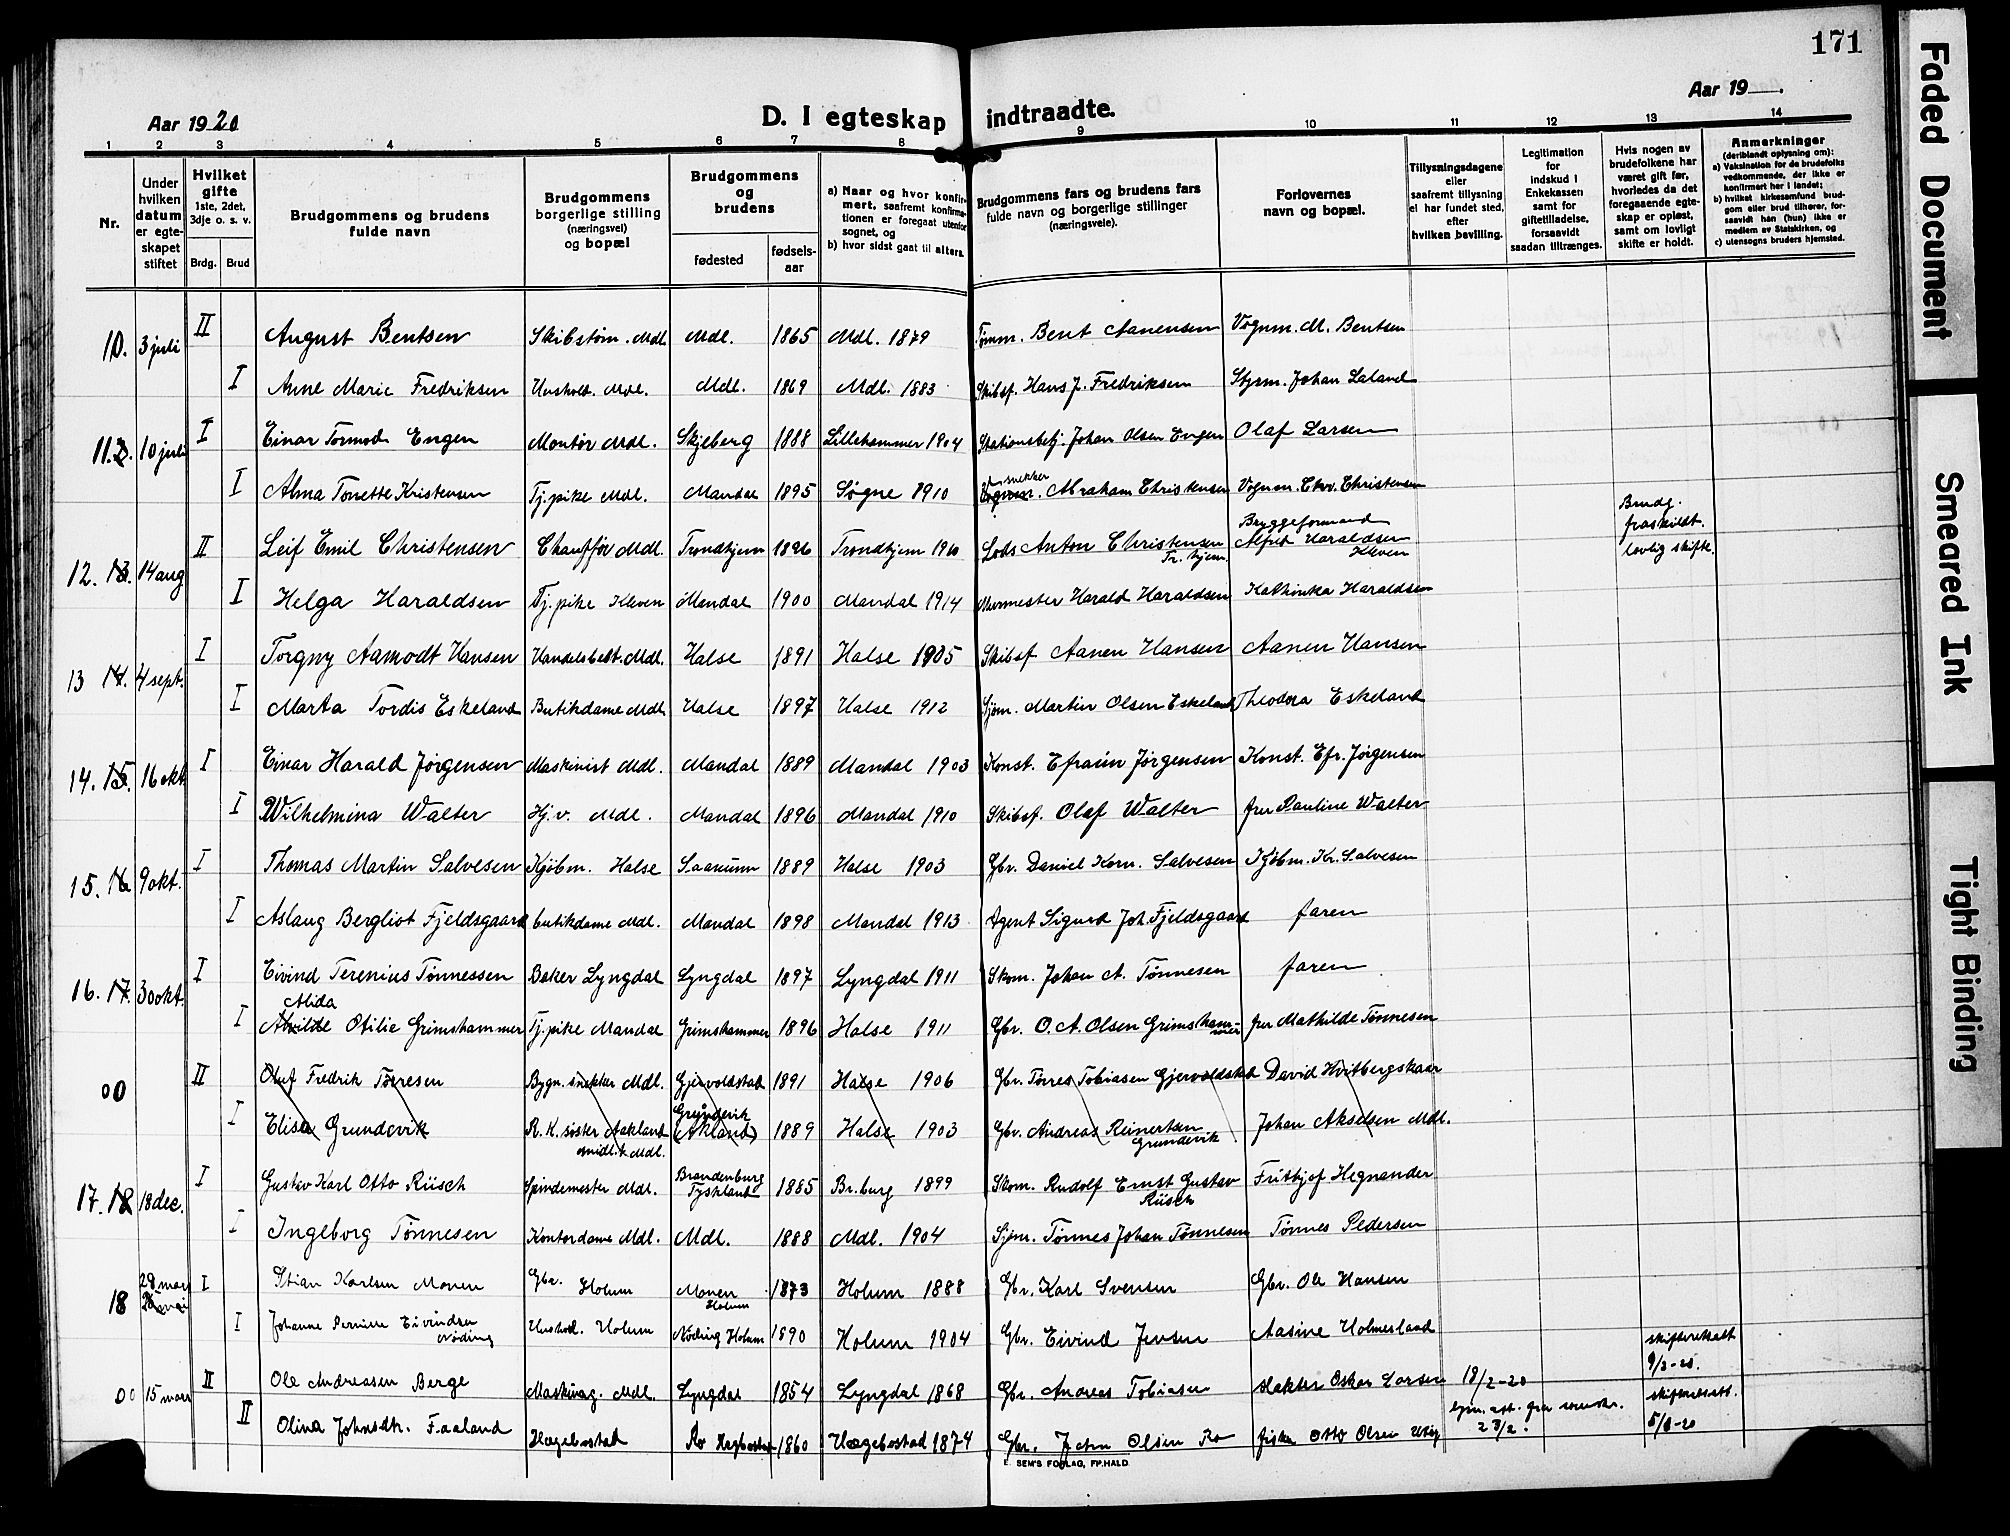 171
Aar 1920
D. I egteskap indtraadte.
Aar 19
1 2 3 4 5 6 7 8 9 10 11 12 13 14
Nr.
Under hvilken datum er egteskapet stiftet
Hvilket gifte 1ste, 2det, 3dje o. s. v.
Brdg. Brud
Brudgommens og brudens fulde navn
Brudgommens borgerlige stilling (næringsvei) og bopæl
Brudgommens og brudens
fødested fødsels-aar
a) Naar og hvor konfirmert, saafremt konfirmationen er foregaat utenfor sognet, og
b) hvor sidst gaat til alters.
Brudgommens fars og brudens fars fulde navn og borgerlige stillinger (næringsveie).
Forlovernes navn og bopæl.
Tillysningsdagene eller saafremt tillysning ei har fundet sted, efter hvilken bevilling.
Legitimation for indskud i Enkekassen samt for giftetilladelse, forsaavidt saadan tiltrænges.
Hvis nogen av brudefolkene har været gift før, hvorledes da det foregaaende egteskap er opløst, samt om lovligt skifte er holdt.
Anmerkninger (deriblandt oplysning om):
a) Vaksination for de brudefolks vedkommende, der ikke er konfirmert her i landet;
b) hvilket kirkesamfund brudgom eller brud tilhører, forsaavidt han (hun) ikke er medlem av Statskirken, og
c) utensogns bruders hjemsted.
10. 3 juli II August Bentsen Skibstøm. Mdl. Mdl. 1865 Mdl. 1879 Tømm. Bent Aanensen Vognm. M. Bentsen
I Anne Marie Fredriksen Hushold. Mdl. Mdl. 1869 Mdl. 1883 Skibsf. Hans J. Fredriksen Styrm. Johan Laland
11. 10 juli I Einar Tormod Engen Montør Mdl. Skjeberg 1888 Lillehammer 1904 Stationsbetj. Johan Olsen Engen Olaf Larsen
I Alma Tonette Kristensen Tj.pike Mdl. Mandal 1895 Søgne 1910 Snekker Vognm. Abraham Christensen Vognm. Chr. Christensen
12. 13. 14 aug II Leif Emil Christensen Chauffør Mdl. Trondhjem 1896 Trondhjem 1910 Lods Anton Christensen Tr.hjem Bryggeformand Alfred Haraldsen Kleven Brudg. fraskildt. lovlig skifte.
I Helga Haraldsen Tj.pike Kleven Mandal 1900 Mandal 1914 Murmester Harald Haraldsen Kathinka Haraldsen
13 14. 4 sept. I Torgny Aamodt Hansen Handelsbest. Mdl. Halse 1891 Halse 1905 Skibsf Aanen Hansen Aanen Hansen
I Marta Tordis Eskeland Butikdame Mdl. Halse 1897 Halse 1912 Sjøm. Martin Olsen Eskeland Theodora Eskeland
14. 15. 16 okt. I Einar Harald Jørgensen Maskinist Mdl. Mandal 1889 Mandal 1903 Konst. Efraim Jørgensen Konst. Efr. Jørgensen
I Wilhelmina Walter Hj.v. Mdl. Mandal 1896 Mandal 1910 Skibsf. Olaf Walter fru Pauline Walter
15. 16 9 okt. I Thomas Martin Salvesen Kjøbm. Halse Saanum 1889 Halse 1903 Gbr. Daniel Korn. Salvesen Kjøbm. Kr. Salvesen
I Aslaug Bergliot Fjeldsgaard butikdame Mdl. Mandal 1898 Mandal 1913 Agent Sigurd Joh. Fjeldsgaard faren
16. 17. 30 okt. I Eivind Terenius Tønnessen Baker Lyngdal Lyngdal 1897 Lyngdal 1911 Skom. Johan A. Tønnesen faren
I Alida Alvilde Otilie Grimshammer Tj.pike Mandal Grimshammer 1896 Halse 1911 Gbr. O. A. Olsen Grimshammer fru Mathilde Tønnesen
00 II Oluf Fredrik Tørresen Bygn. snekker Mdl. Gjervoldstad 1891 Halse 1906 Gbr. Tørres Tobiasen Gjervoldstad David Hvitbergskaar
I Elisa Grundevik R. K. søster Aakland midl. t. Mdl. Grundevik (Akland) 1889 Halse 1903 Gbr. Andreas Reinertsen Grundevik Johan Akselsen Mdl.
17. 18 18 dec. I Gustav Karl Otto Rüsch Spindemester Mdl. Brandenburg Tyskland 1885 Br.burg 1899 Skom. Rudolf Ernst Gustav Rüsch Frithjof Hegnander
I Ingeborg Tønnesen Kontordame Mdl. Mdl. 1888 Mdl. 1904 Sjøm. Tønnes Johan Tønnesen Tønnes Pedersen
18 28 mars I Stian Karlsen Monen Gbr. Holum Monen Holum 1873 Holum 1888 Gbr. Karl Svensen Gbr. Ole Hansen
I Johanne Pernille Eivindsen Nøding Hushold. Holum Nøding Holum 1890 Holum 1904 Gbr. Eivind Jensen Aasine Holmesland
00 15 mars II Ole Andreassen Berge Maskinag. Mdl. Lyngdal 1854 Lyngdal 1868 Gbr. Andreas Tobiasen slakter Oskar Larsen 18/2-20 skifteretsatt 9/3-20.
II Olina Johnsdtr. Faaland Hægebostad Ro Hægebostad 1860 Hægebostad 1874 Gbr. John Olsen Ro fisker Otto Olsen lysn. att. fra 23/2. skifteretsatt. 5/3-20
E. SEM'S FORLAG, FR.HALD
Faded Document
Smeared Ink
Tight Binding